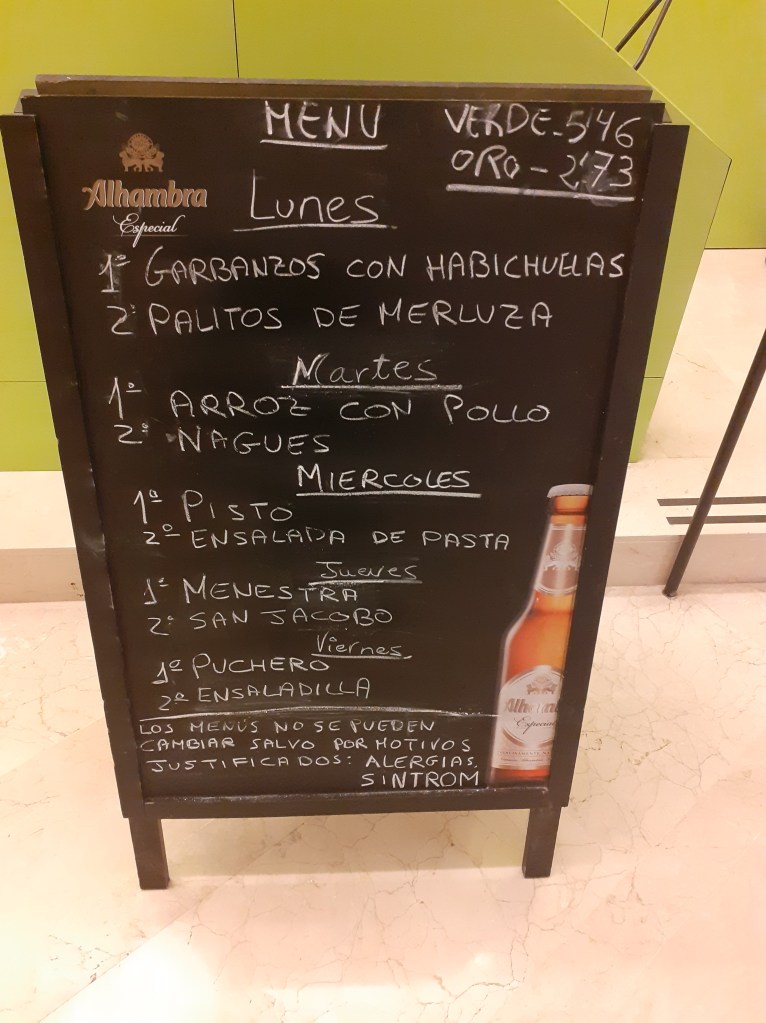 MENU
VERDE-5'46
ORO-2'73
Alhambra
Especial
Lunes
1º GARBANZOS CON HABICHUELAS
2º PALITOS DE MERLUZA
Martes
1º ARROZ CON POLLO
2º NAGUES
MIERCOLES
1º PISTO
2º ENSALADA DE PASTA
Jueves
1º MENESTRA
2º SAN JACOBO
Viernes
1º PUCHERO
2º ENSALADILLA
LOS MENÚS NO SE PUEDEN
CAMBIAR SALVO POR MOTIVOS
JUSTIFICADOS: ALERGIAS,
SINTROM
Alhambra
Especial